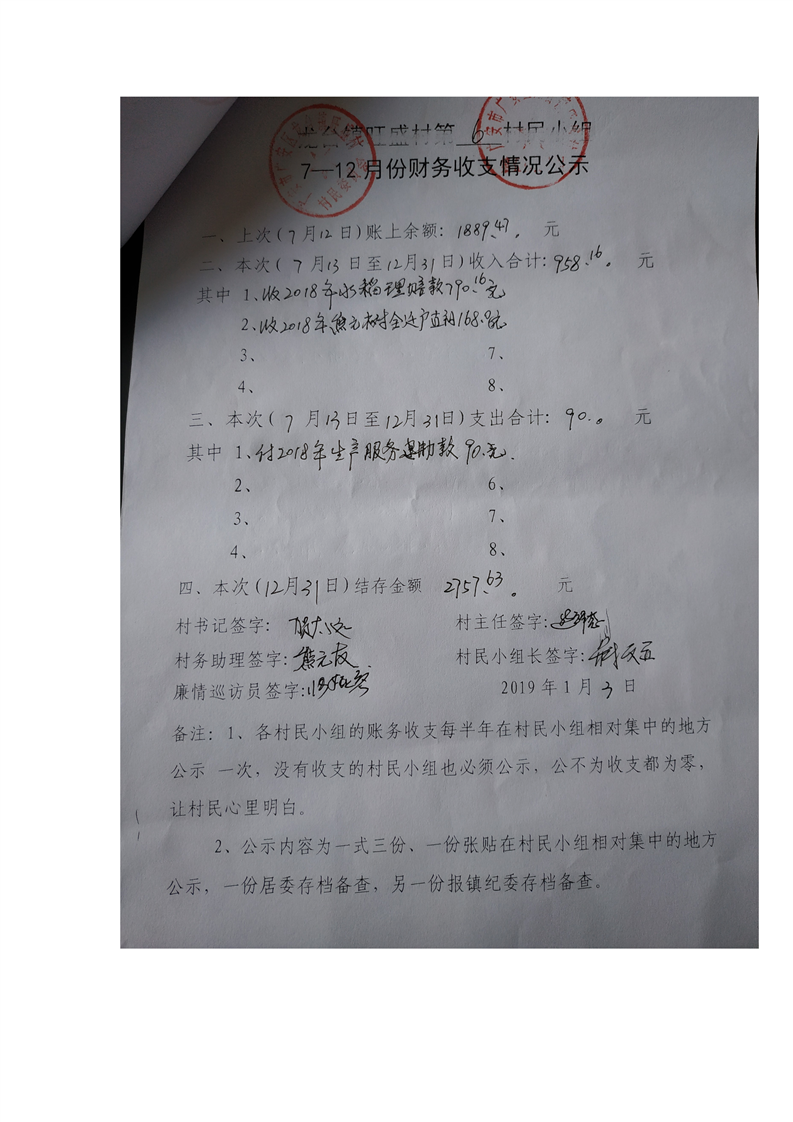 龙台镇旺盛村第 6 村民小组
7—12月份财务收支情况公示
一、上次(7月12日)账上余额：1889.47。 元
二、本次(7月13日至12月31日)收入合计：958.16。 元
其中 1、收2018年水稻理赔款790.16元
2、收2018年熊元树全迁户直补168.0元
3、 7、
4、 8、
三、本次(7月13日至12月31日)支出合计：90.。 元
其中 1、付2018年生产服务 款90.元.
2、 6、
3、 7、
4、 8、
四、本次(12月31日)结存金额 2757.63。 元
村书记签字： 村主任签字：
村务助理签字：熊元友 村民小组长签字：
廉情巡访员签字： 2019年1月3日
备注：1、各村民小组的账务收支每半年在村民小组相对集中的地方
公示 一次，没有收支的村民小组也必须公示，公不为收支都为零，
让村民心里明白。
2、公示内容为一式三份、一份张贴在村民小组相对集中的地方
公示，一份居委存档备查，另一份报镇纪委存档备查。